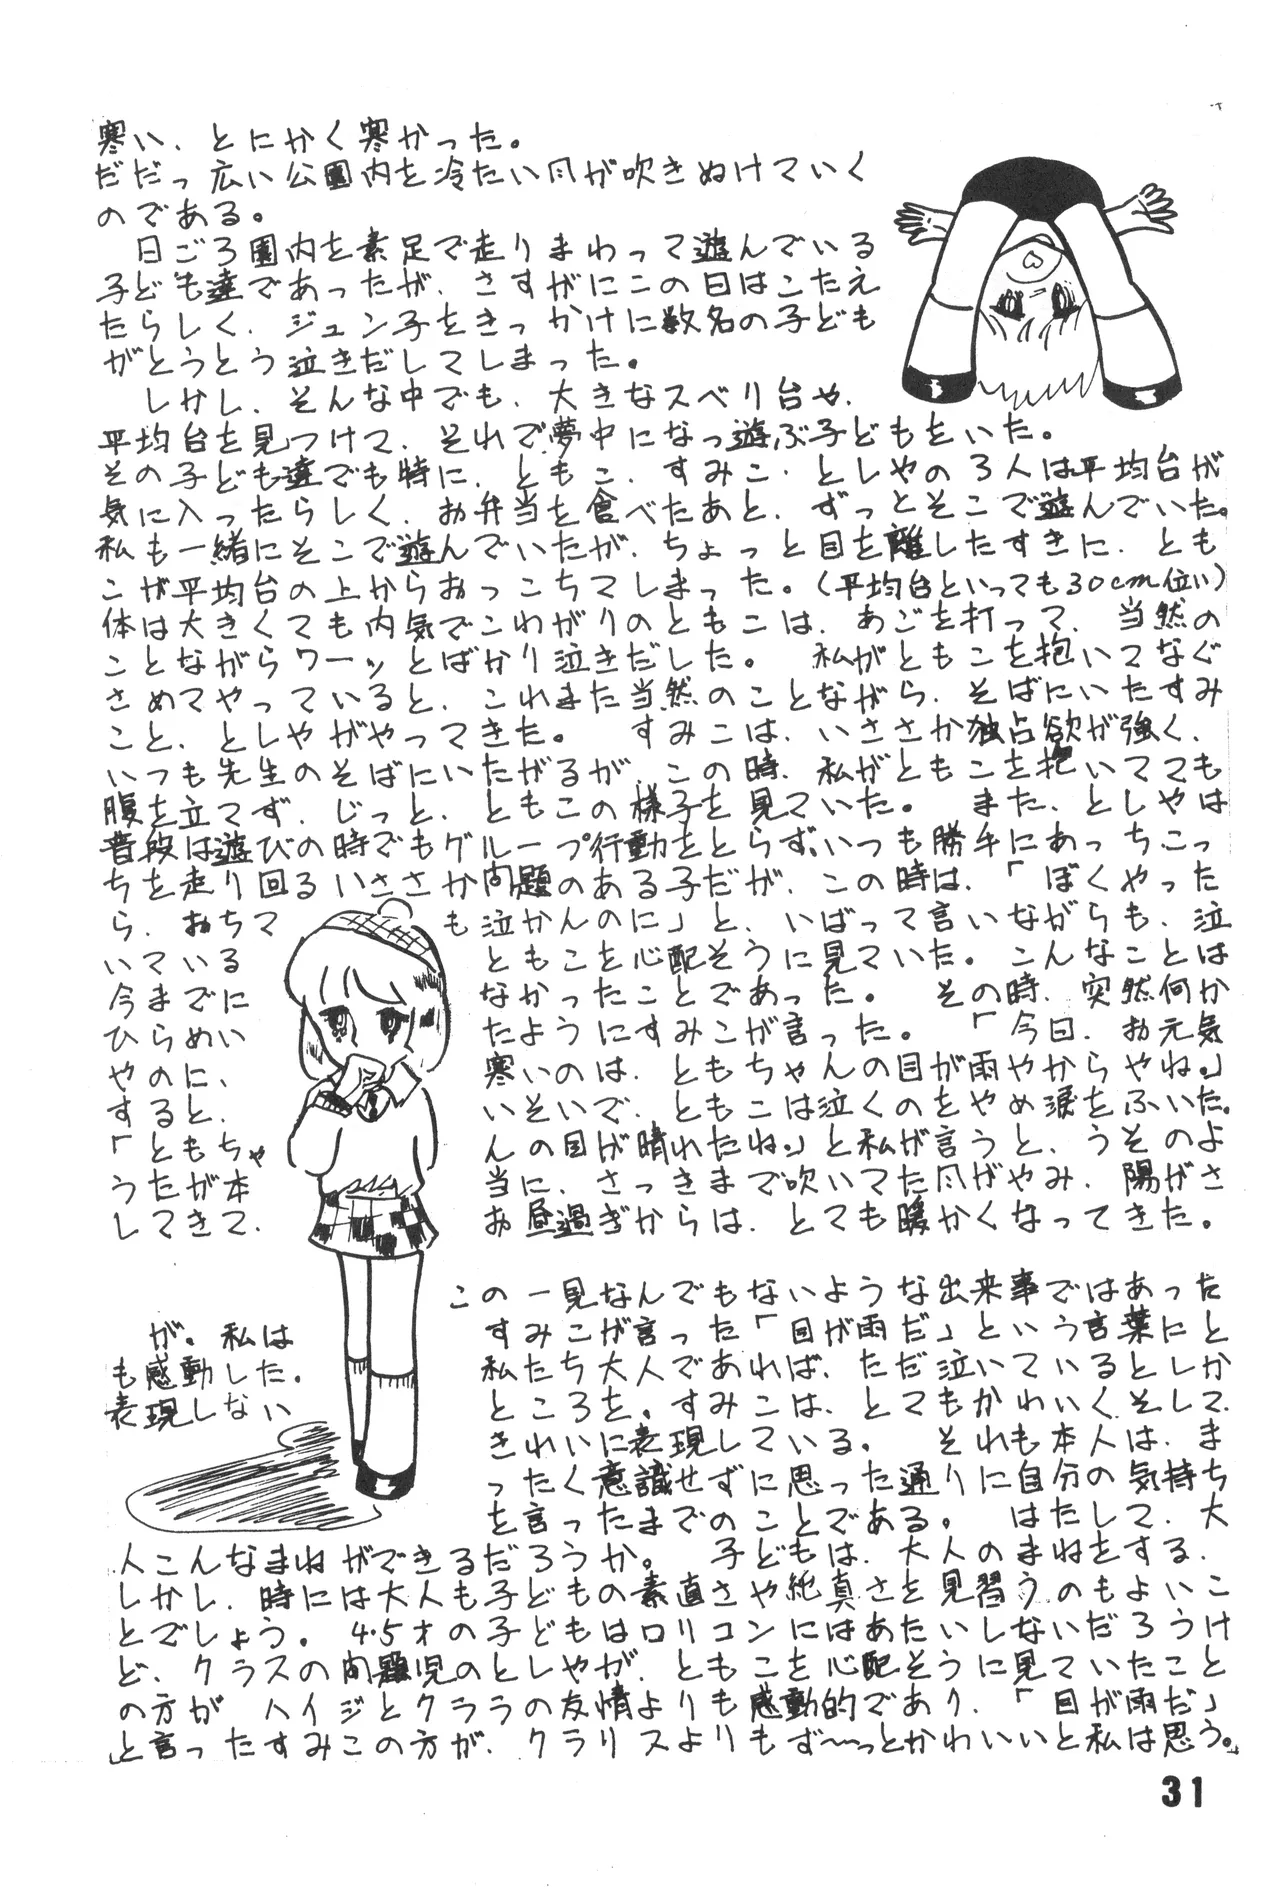 寒い、とにかく寒かった。
だだっ広い公園内を冷たい風が吹きぬけていく
のである。
日ごろ園内を素足で走りまわって遊んでいる
子ども達であったが、さすがにこの日はこたえ
たらしく、ジュン子をきっかけに数名の子ども
がとうとう泣きだしてしまった。
しかし、そんな中でも、大きなスベリ台や、
平均台を見つけて、それで夢中になっ遊ぶ子どももいた。
その子ども達でも特に、ともこ、すみこ、としやの3人は平均台が
気に入ったらしく、お弁当を食べたあと、ずっとそこで遊んでいた。
私も一緒にそこで遊んでいたが、ちょっと目を離したすきに、とも
こが平均台の上からおっこちてしまった。(平均台といっても30cm位い)
体は大きくても内気でこわがりのともこは、あごを打って、当然の
ことながらワーッとばかり泣きだした。 私がともこを抱いてなぐ
さめてやっていると、これまた当然のことながら、そばにいたすみ
こと、としやがやってきた。 すみこは、いささか独占欲が強く、
いつも先生のそばにいたがるが、この時、私がともこを抱いてても
腹を立てず、じっと、ともこの様子を見ていた。 また、としやは
普段は遊びの時でもグループ行動をとらず、いつも勝手にあっちこっ
ちを走り回るいささか問題のある子だが、この時は、「ぼくやった
ら、おちて も泣かんのに」と、いばって言いながらも、泣
いている ともこを心配そうに見ていた。こんなことは
今までに なかったことであった。 その時、突然何か
ひらめい たようにすみこが言った。 「今日、お元気
やのに、 寒いのは、ともちゃんの目が雨やからやね。」
すると、 いそいで、ともこは泣くのをやめ涙をふいた。
「ともちゃ んの目が晴れたね。」と私が言うと、うそのよ
うたが本 当に、さっきまで吹いてた風がやみ、陽がさ
してきて、 お昼過ぎからは、とても暖かくなってきた。
この一見なんでもないような出来事ではあった
が。私は すみこが言った「目が雨だ」という言葉にと
も感動した。 私たち大人であれば、ただ泣いているとしか
表現しない ところを。すみこは、とてもかわいくそして、
きれいに表現している。 それも本人は、ま
ったく意識せずに思った通りに自分の気持ち
を言ったまでのことである。 はたして、大
人こんなまねができるだろうか。 子どもは、大人のまねをする、
しかし、時には大人も子どもの素直さや純真さを見習うのもよいこ
とでしょう。 4・5才の子どもはロリコンにはあたいしないだろうけ
ど、クラスの問題児のとしやが、ともこを心配そうに見ていたこと
の方が ハイジとクララの友情よりも感動的であり、「目が雨だ」
と言ったすみこの方が、クラリスよりもず〜っとかわいいと私は思う。
31